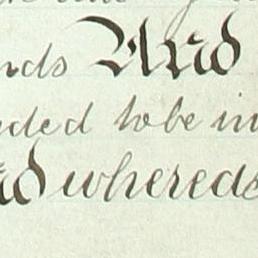 nds And
ded to be in
nd whereas